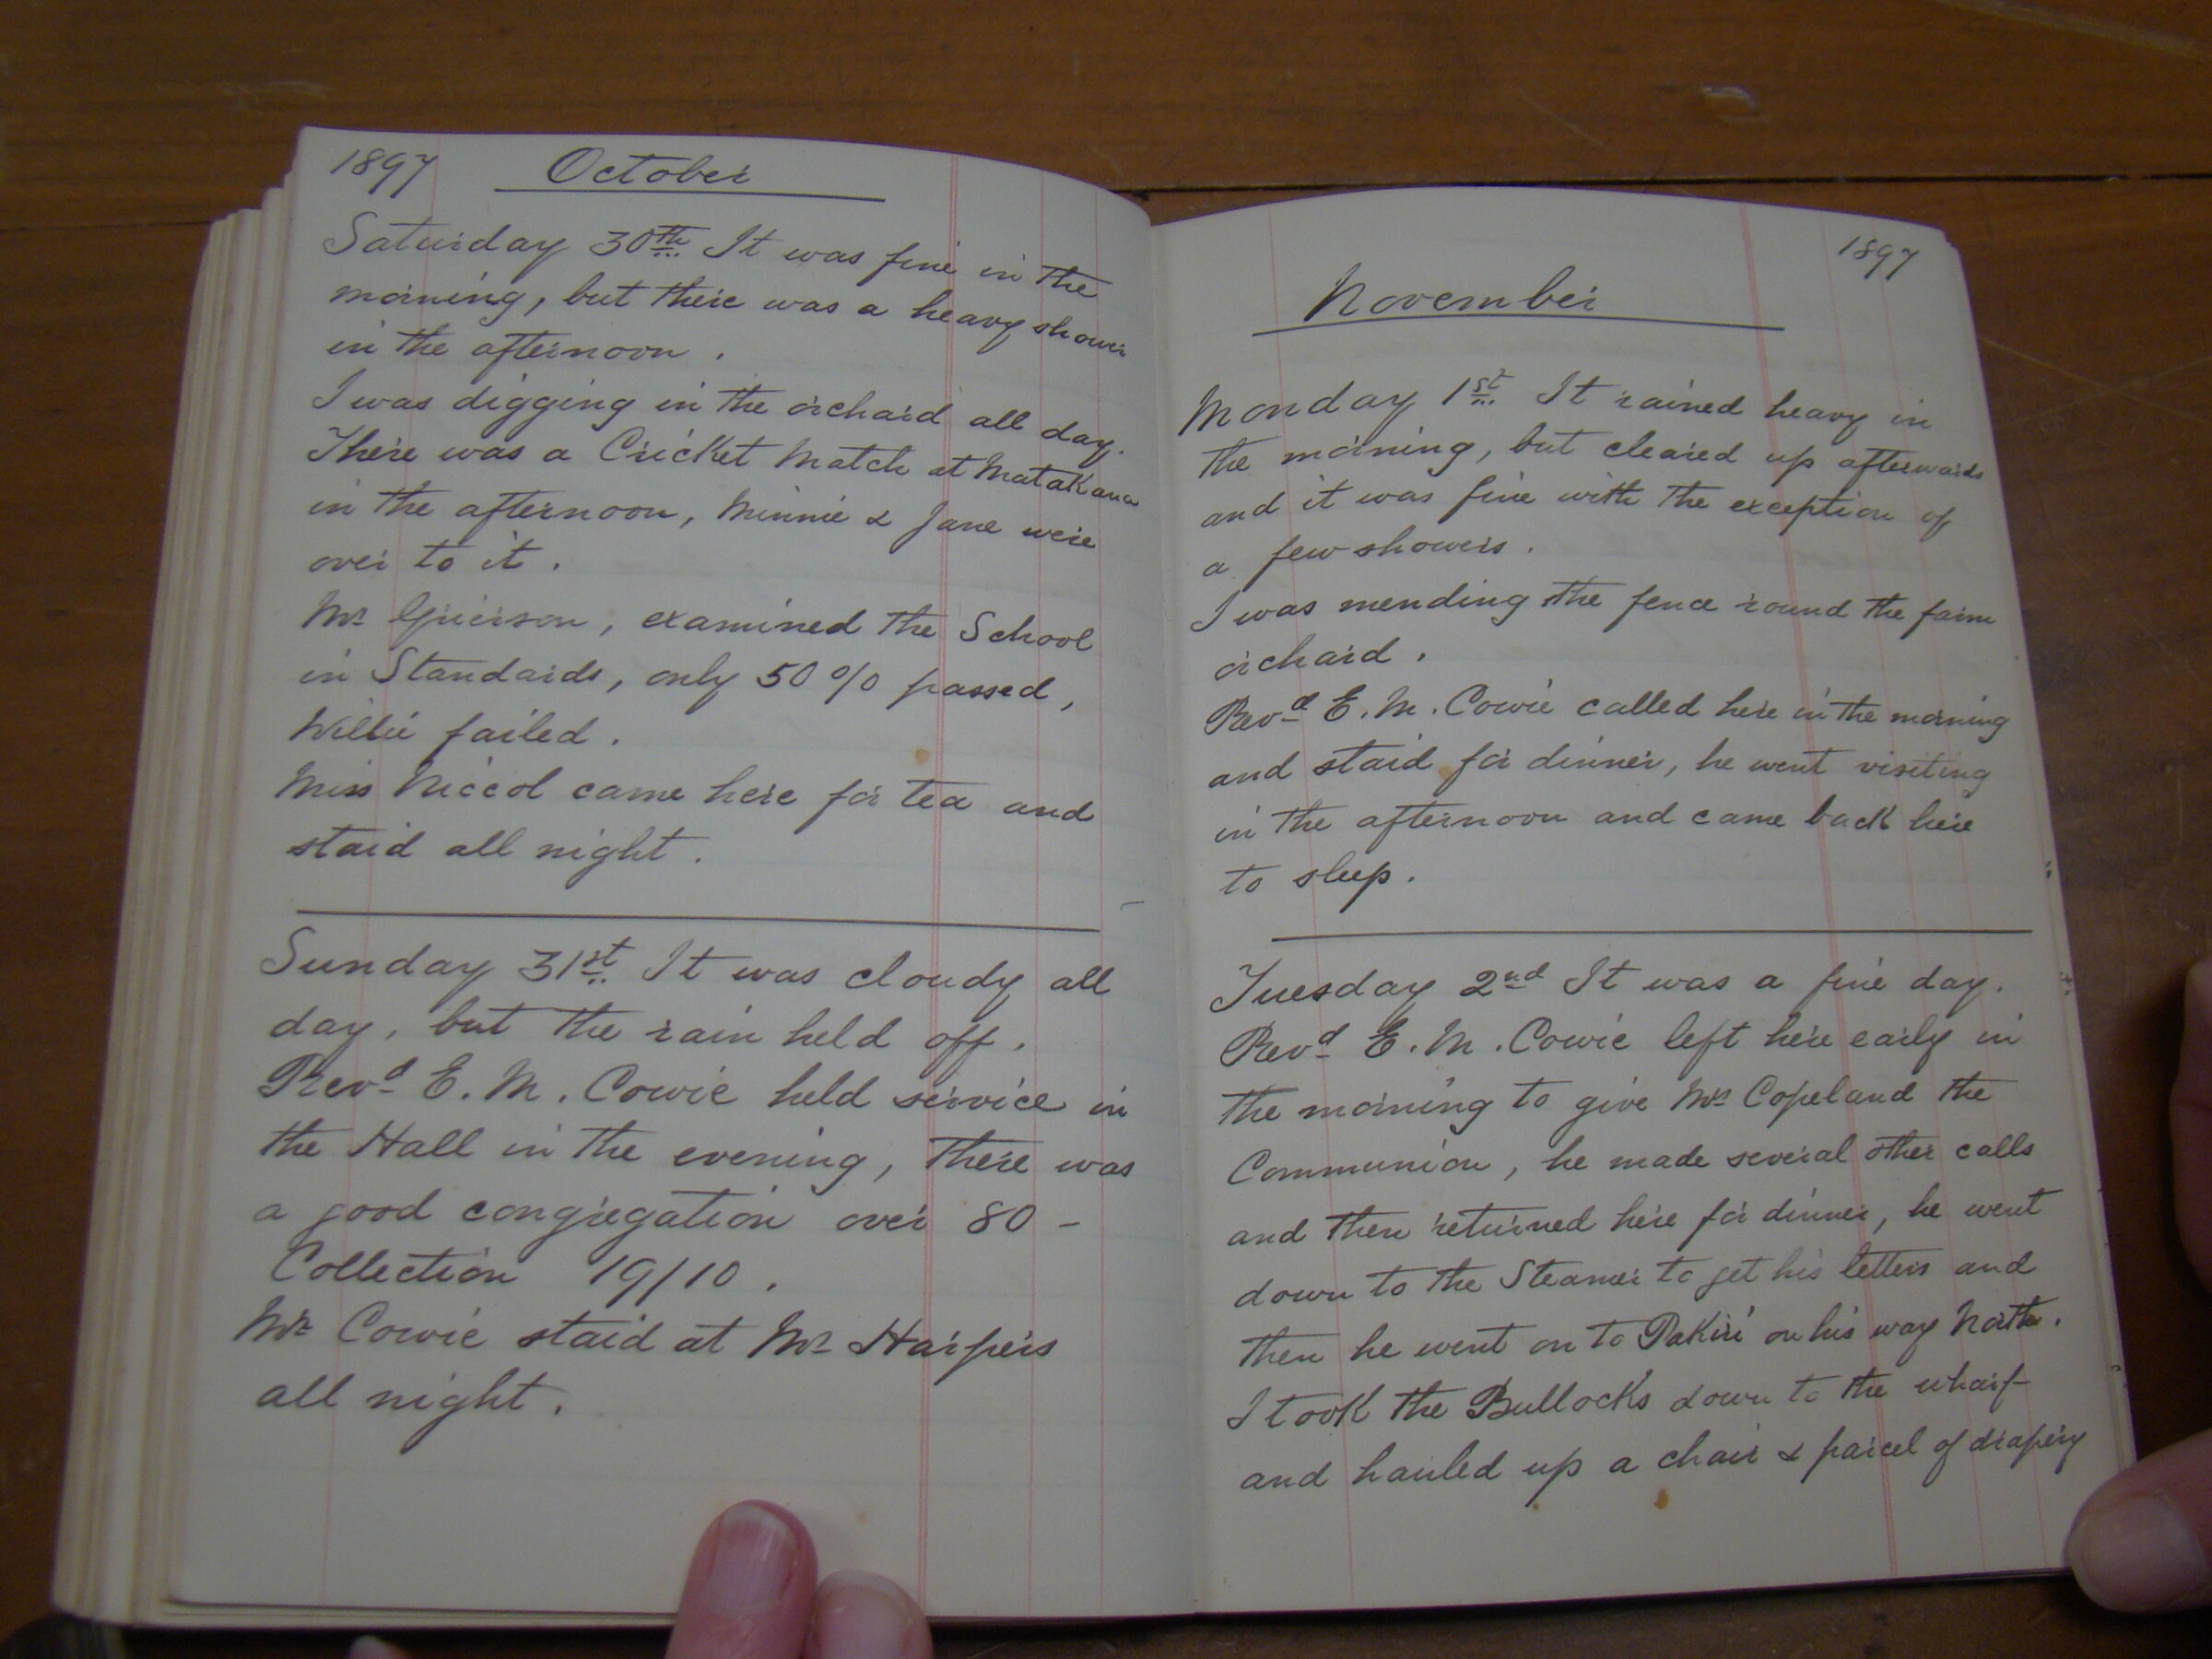 1897 October
Saturday 30th It was fine in the
morning, but there was a heavy shower
in the afternoon.
I was digging in the orchard all day.
There was a Cricket Match at Matakana
in the afternoon, Minnie & Jane were
over to it.
Mr Grierson, examined the School
in Standards, only 50% passed,
Willie failed.
Miss Niccol came here for tea and
staid all night.
Sunday 31st It was cloudy all
day, but the rain held off.
Revd E. M. Cowie held service in
the Hall in the evening, there was
a good congregation over 80 -
Collection 19/10.
Mr Cowie staid at Mr Harpers
all night.
1897
November
Monday 1st It rained heavy in
the morning, but cleared up afterwards
and it was fine with the exception of
a few showers.
I was mending the fence round the farm
orchard.
Revd E. M. Cowie called here in the morning
and staid for dinner, he went visiting
in the afternoon and came back here
to sleep.
Tuesday 2nd It was a fine day.
Revd E. M. Cowie left here early in
the morning to give Mrs Copeland the
Communion, he made several other calls
and then returned here for dinner, he went
down to the Steamer to get his letters and
then he went on to Pakiri on his way North.
I took the Bullocks down to the wharf
and hauled up a chair & parcel of drapery